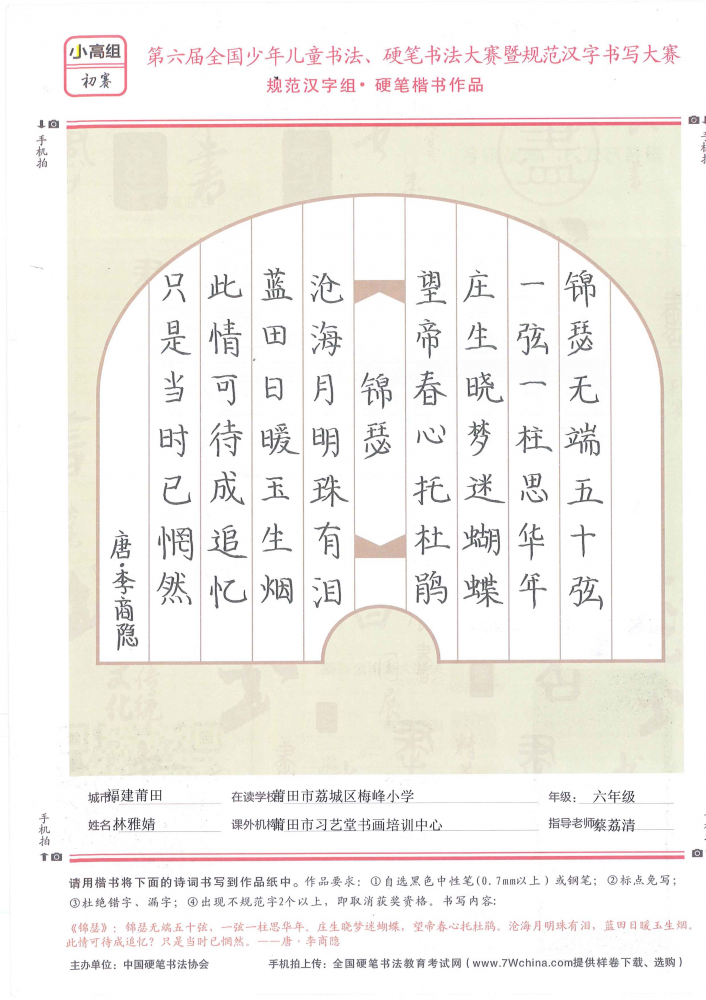 小高组
初赛
第六届全国少年儿童书法、硬笔书法大赛暨规范汉字书写大赛
规范汉字组·硬笔楷书作品
手机拍
手机拍
锦瑟无端五十弦
一弦一柱思华年
庄生晓梦迷蝴蝶
望帝春心托杜鹃
锦瑟
沧海月明珠有泪
蓝田日暖玉生烟
此情可待成追忆
只是当时已惘然
唐·李商隐
城市 福建莆田 在读学校 莆田市荔城区梅峰小学 年级: 六年级
姓名 林雅婧 课外机构 莆田市习艺堂书画培训中心 指导老师 蔡荔清
手机拍
请用楷书将下面的诗词书写到作品纸中。作品要求: ①自选黑色中性笔(0.7mm以上)或钢笔; ②标点免写;
③杜绝错字、漏字; ④出现不规范字2个以上, 即取消获奖资格。书写内容:
《锦瑟》: 锦瑟无端五十弦, 一弦一柱思华年。庄生晓梦迷蝴蝶, 望帝春心托杜鹃。沧海月明珠有泪, 蓝田日暖玉生烟。
此情可待成追忆? 只是当时已惘然。——唐·李商隐
主办单位: 中国硬笔书法协会 手机拍上传: 全国硬笔书法教育考试网 (www.7Wchina.com提供样卷下载、选购)